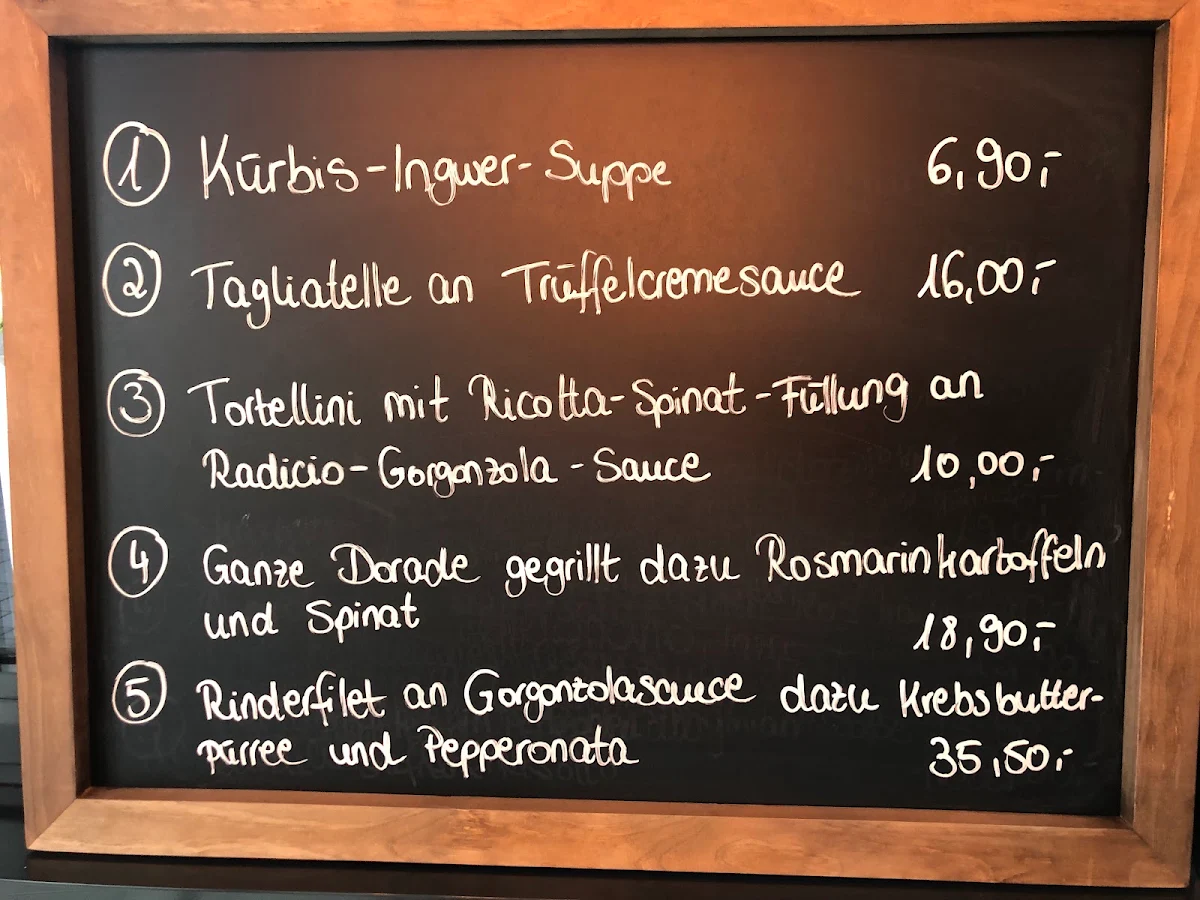 1 Kürbis-Ingwer-Suppe 6,90,-
2 Tagliatelle an Trüffelcremesauce 16,00,-
3 Tortellini mit Ricotta-Spinat-Füllung an
Radicio-Gorgonzola-Sauce 10,00,-
4 Ganze Dorade gegrillt dazu Rosmarinkartoffeln
und Spinat 18,90,-
5 Rinderfilet an Gorgonzolasauce dazu Krebsbutter-
pürree und Pepperonata 35,50,-